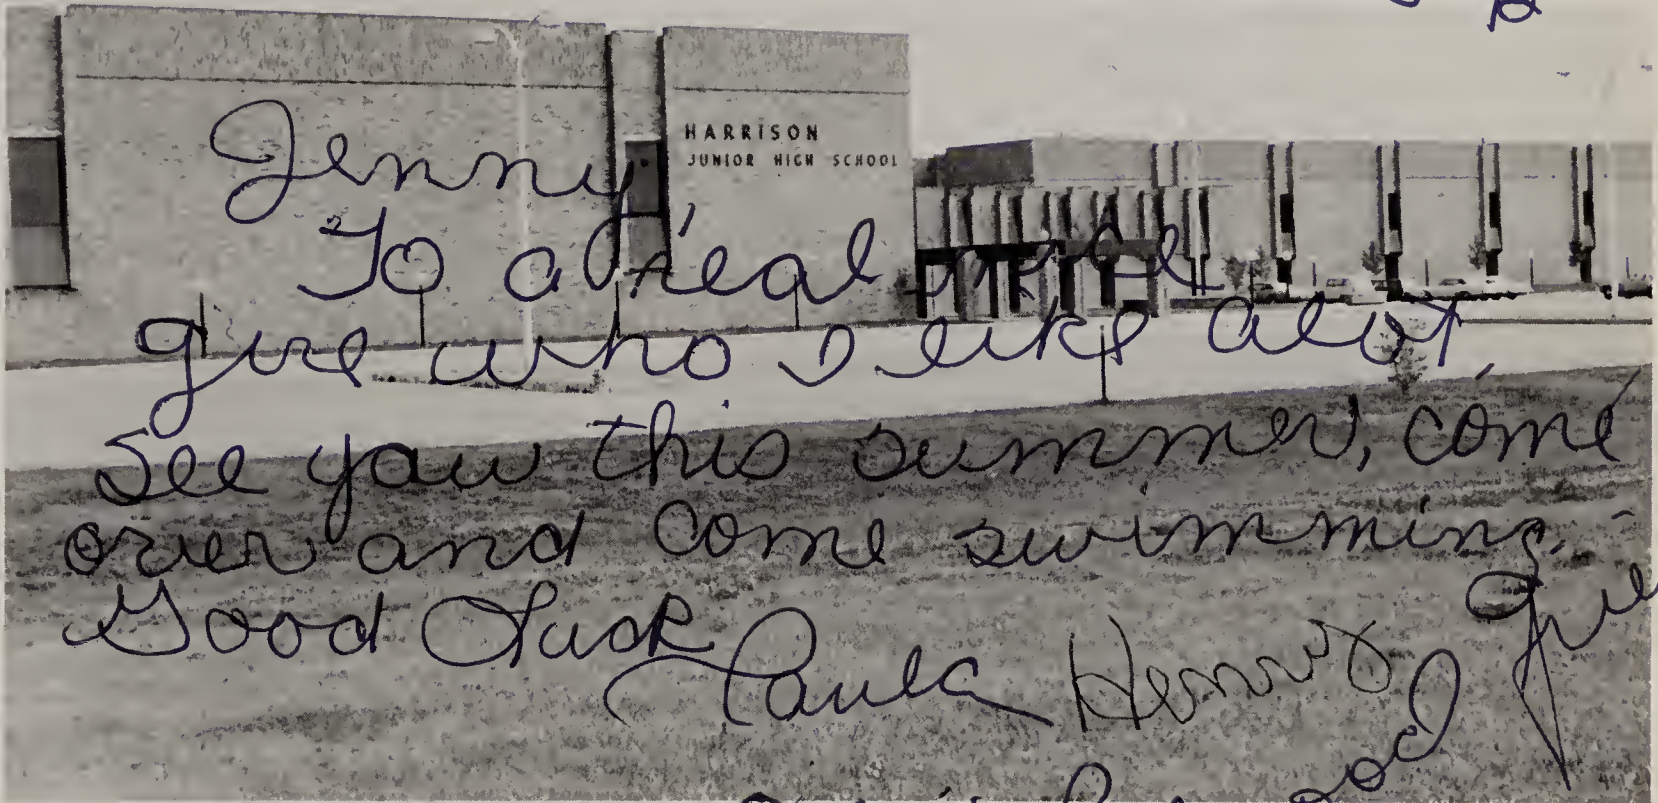 HARRISON
JUNIOR HIGH SCHOOL
Jenny,
To a real nice
girl who I like alot,
See yaw this summer, come
over and come swimming -
Good Luck
Paula Henry